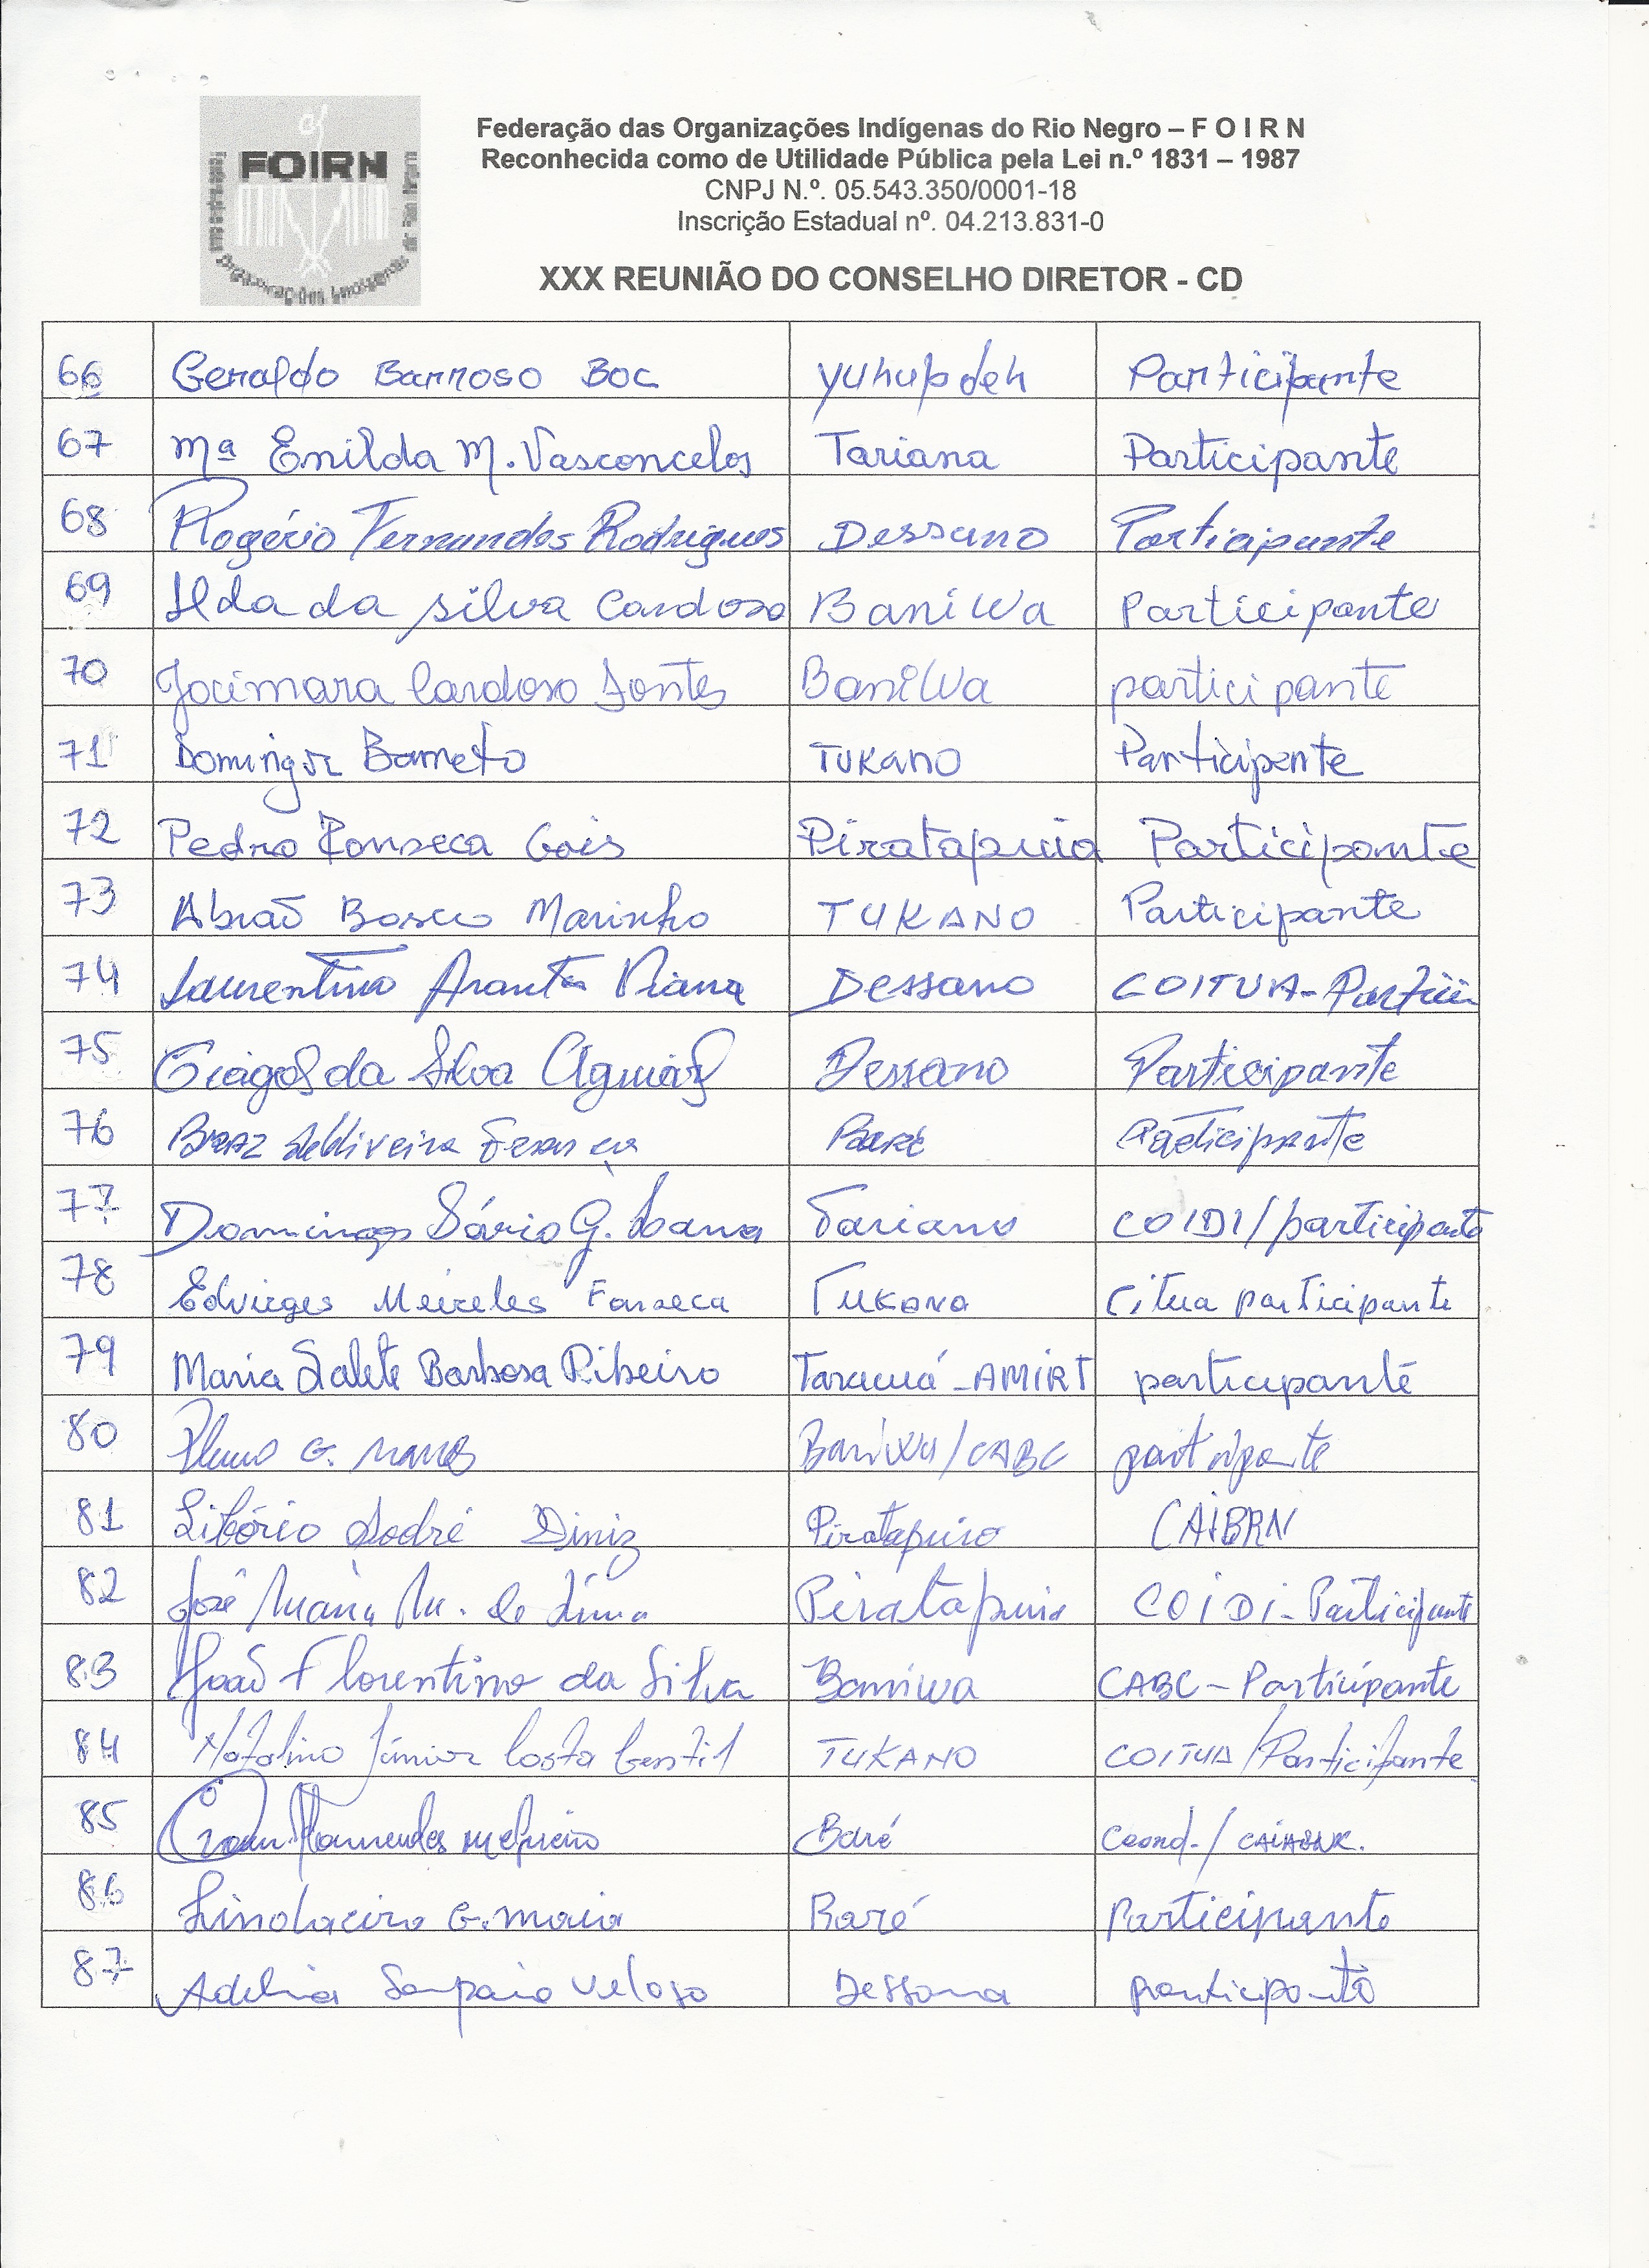 FOIRN
Federação das Organizações Indígenas do Rio Negro – F O I R N
Reconhecida como de Utilidade Pública pela Lei n.º 1831 – 1987
CNPJ N.º. 05.543.350/0001-18
Inscrição Estadual nº. 04.213.831-0
XXX REUNIÃO DO CONSELHO DIRETOR - CD
66 Geraldo Barroso Boc Yuhupdeh Participante
67 Mª Enilda M. Vasconcelos Tariana Participante
68 Rogério Fernandes Rodrigues Dessano Participante
69 Ilda da Silva Cardoso Baniwa Participante
70 Jocimara Cardoso Fontes Baniwa participante
71 Domingos Barreto TUKANO Participante
72 Pedro Fonseca Gois Piratapuia Participante
73 Abraão Bosco Marinho TUKANO Participante
74 Laurentino Arantes Viana Dessano COITUA-
75 da Silva Aguiar Dessano Participante
76 Braz Baré Participante
77 Domingos Sávio G. Tariano COIDI/participante
78 Edvirges Meireles Fonseca Tukano Citua participante
79 Maria Salete Barbosa Ribeiro Taracuá - AMIRT participante
80 G. Baniwa/CABC participante
81 Libório Sodré Diniz Piratapuio CAIBRN
82 José Maria M. de Lima Piratapuia COIDI - Participante
83 João Florentino da Silva Baniwa CABC - Participante
84 Natalino Júnior Costa Gentil TUKANO COITUA/Participante
85 Baré Coord./
86 G. Maia Baré Participante
87 Adelina Sampaio Veloso Dessana participante